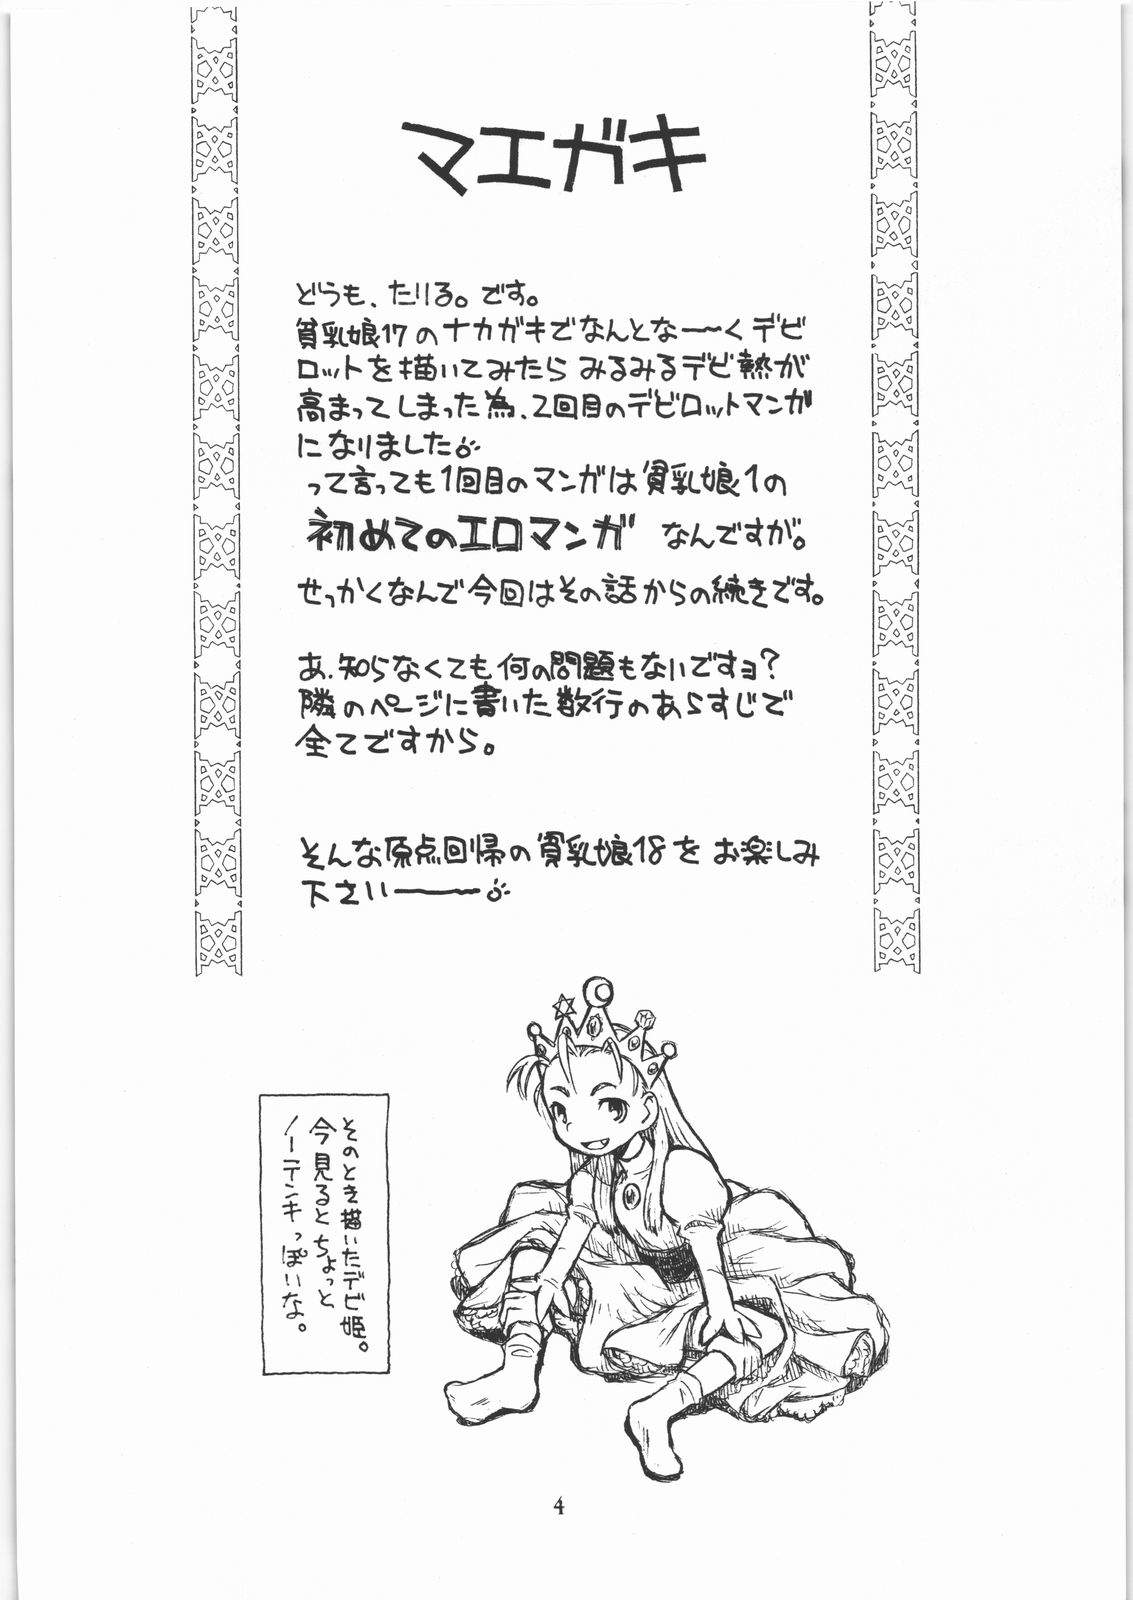 マエガキ
どうも、たりる。です。
貧乳娘17のナカガキでなんとな〜〜くデビ
ロットを描いてみたら みるみるデビ熱が
高まってしまった為、2回目のデビロットマンガ
になりました
って言っても1回目のマンガは貧乳娘1の
初めてのエロマンガ なんですが。
せっかくなんで今回はその話からの続きです。
あ、知らなくても何の問題もないですョ?
隣のページに書いた数行のあらすじで
全てですから。
そんな原点回帰の貧乳娘18をお楽しみ
下さい―――
そのとき描いたデビ姫。
今見るとちょっと
ノーテンキっぽいな。
4